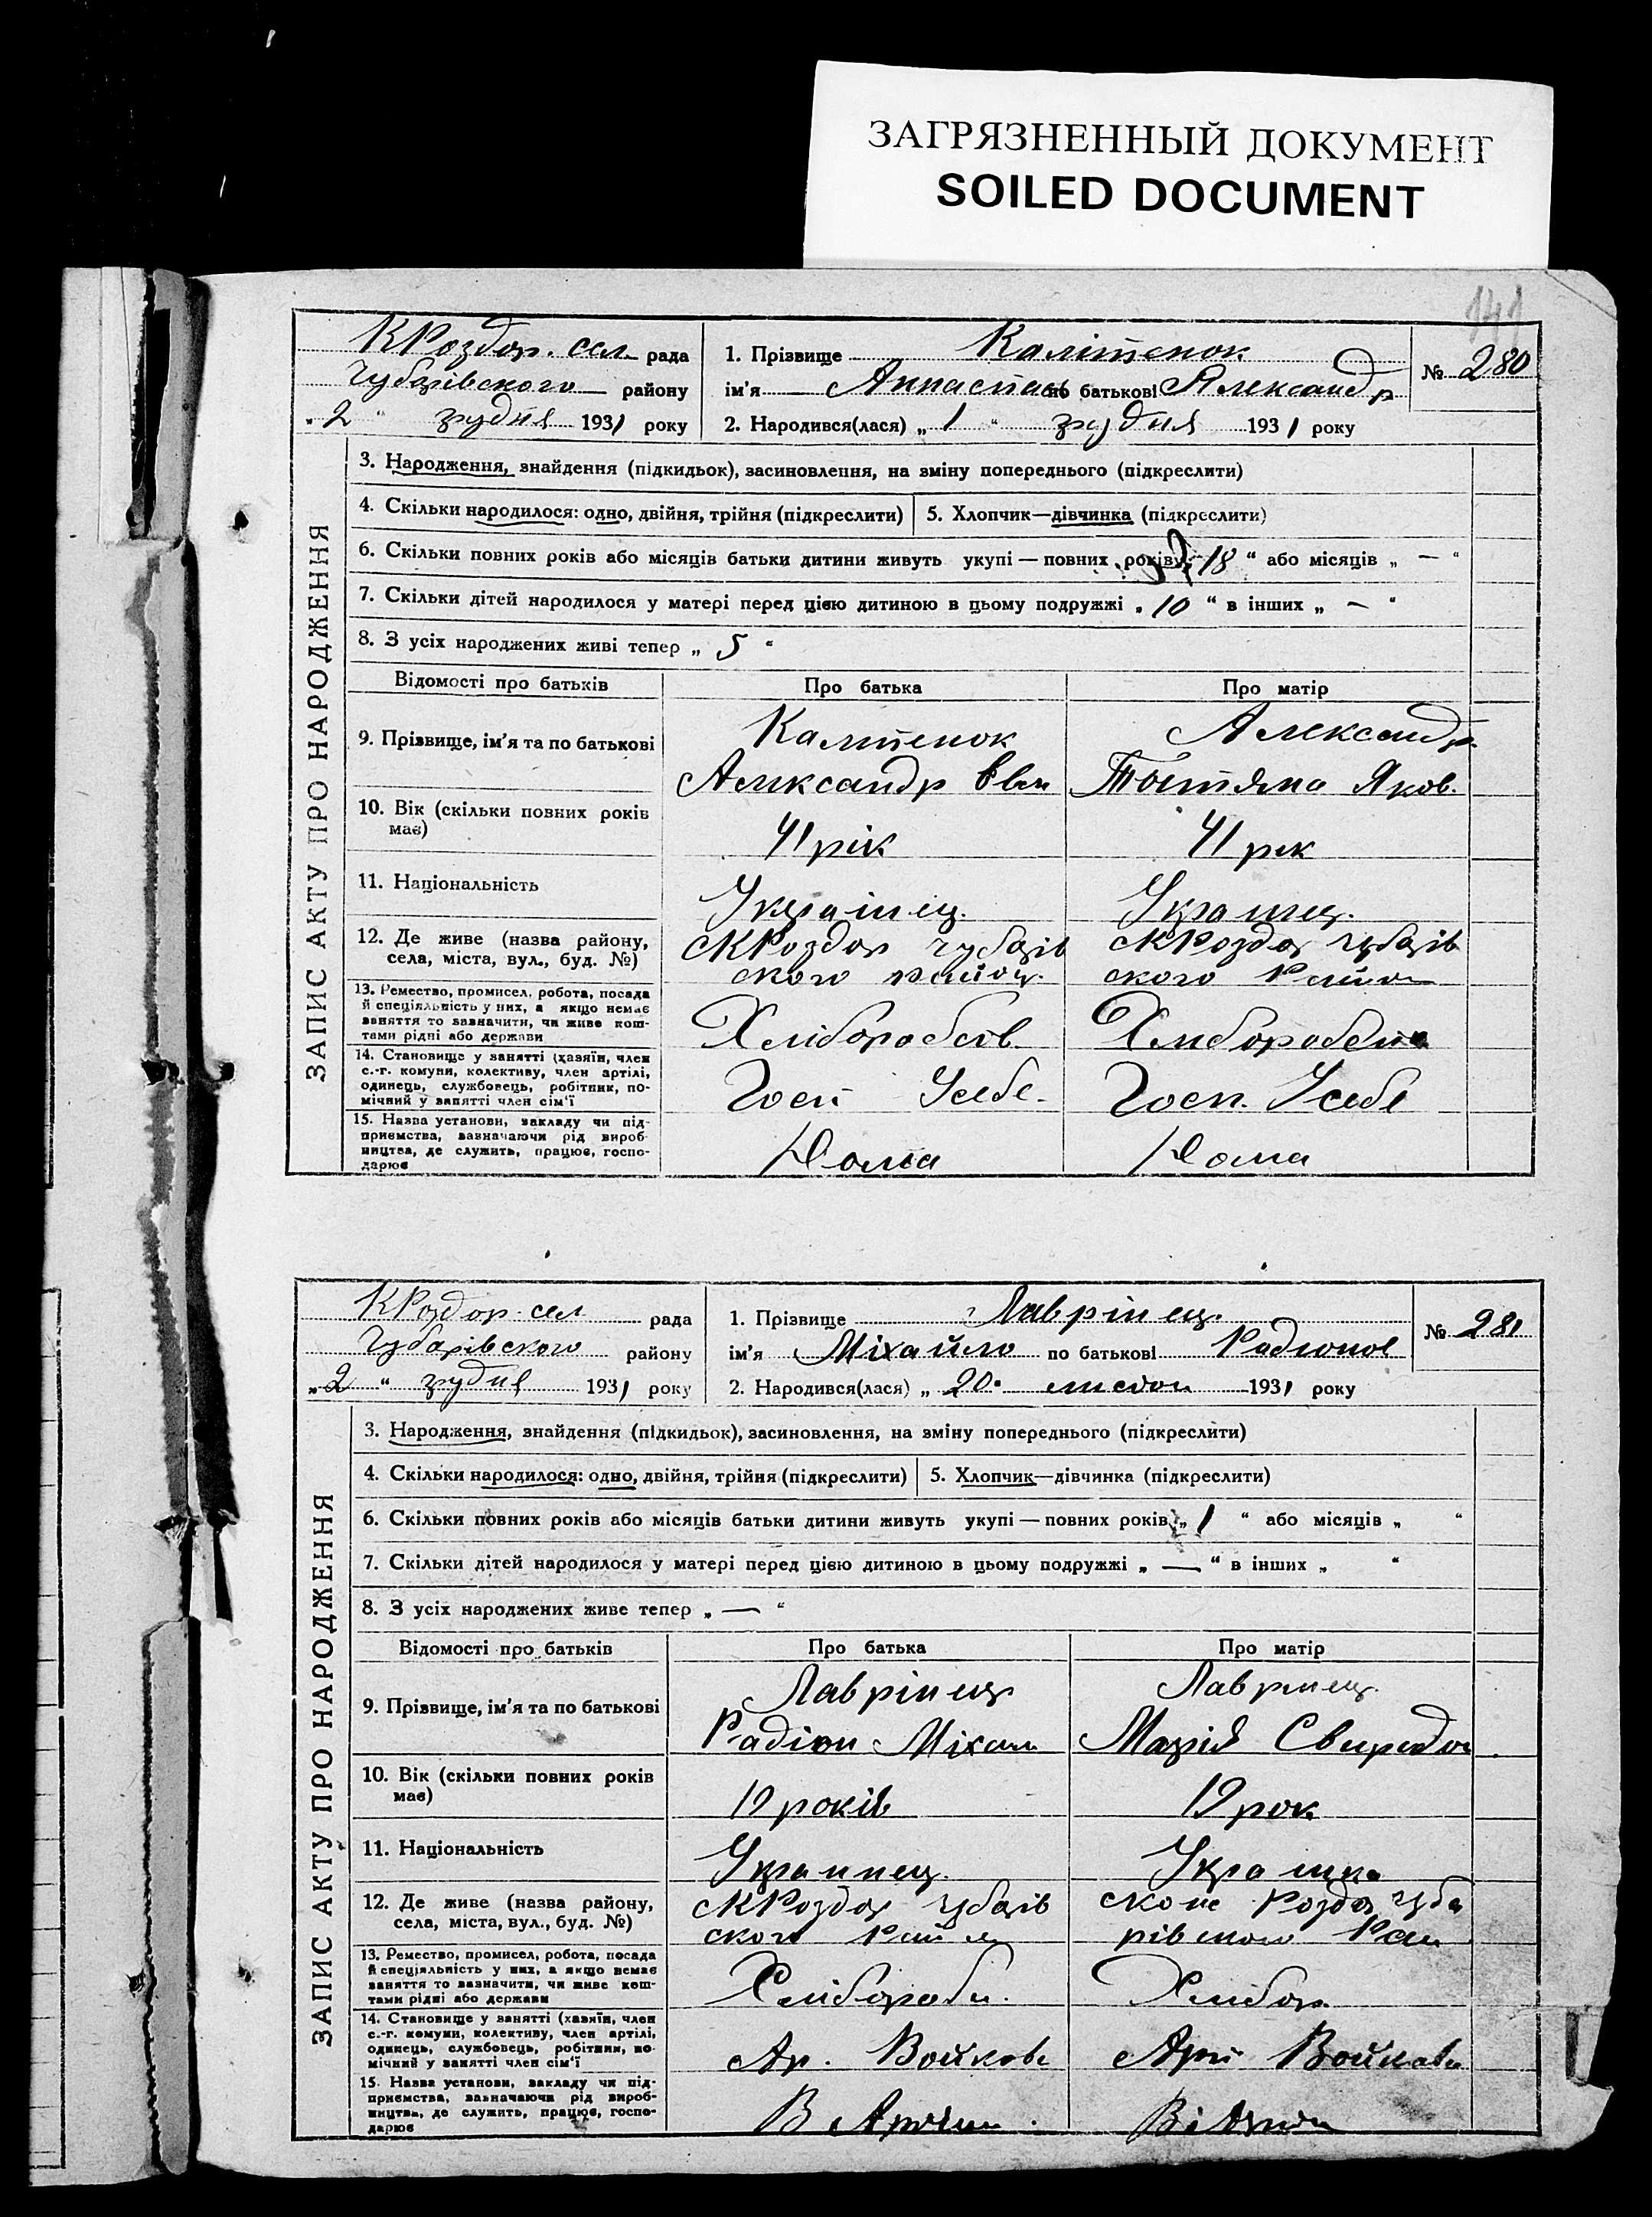 ЗАГРЯЗНЕННЫЙ ДОКУМЕНТ
SOILED DOCUMENT
141
КРоздор. сел. рада
Чубарівского району
„2“ грудня 1931 року
1. Прізвище Калітенок
ім'я Анпастась по батькові Александр
№ 280
2. Народився(лася) „1“ грудня 1931 року
ЗАПИС АКТУ ПРО НАРОДЖЕННЯ
3. Народження, знайдення (підкидьок), засиновлення, на зміну попереднього (підкреслити)
4. Скільки народилося: одно, двійня, трійня (підкреслити)
5. Хлопчик—дівчинка (підкреслити)
6. Скільки повних років або місяців батьки дитини живуть укупі — повних років „18“ або місяців „—“
7. Скільки дітей народилося у матері перед цією дитиною в цьому подружжі „10“ в інших „—“
8. З усіх народжених живі тепер „5“
Відомості про батьків
Про батька
Про матір
9. Прізвище, ім'я та по батькові
Калітенок
Александр
Александр
Яков.
10. Вік (скільки повних років
має)
41 рік
41 рік
11. Національність
Українец.
Українец.
12. Де живе (назва району,
села, міста, вул., буд. №)
сКРоздор Чубарів
ского район.
сКРоздор Чубарів
ского
13. Ремество, промисел, робота, посада
й спеціяльність у них, а якщо немає
заняття то зазначити, чи живе кош-
тами рідні або держави
Хліборобств
14. Становище у занятті (хазяїн, член
с.-г. комуни, колективу, член артілі,
одинець, службовець, робітник, по-
мічний у занятті член сім'ї
Госп Усебе.
Госп. Усебе
15. Назва установи, закладу чи під-
приємства, зазначаючи рід вироб-
ництва, де служить, працює, госпо-
дарює
Дома
Дома
КРоздор. сел рада
Чубарівского району
„2“ грудня 1931 року
1. Прізвище Лаврінец.
ім'я Міхайло по батькові Радіонов
№ 281
2. Народився(лася) „20. 1931 року
ЗАПИС АКТУ ПРО НАРОДЖЕННЯ
3. Народження, знайдення (підкидьок), засиновлення, на зміну попереднього (підкреслити)
4. Скільки народилося: одно, двійня, трійня (підкреслити)
5. Хлопчик—дівчинка (підкреслити)
6. Скільки повних років або місяців батьки дитини живуть укупі — повних років „1“ або місяців „ “
7. Скільки дітей народилося у матері перед цією дитиною в цьому подружжі „—“ в інших „ “
8. З усіх народжених живе тепер „—“
Відомості про батьків
Про батька
Про матір
9. Прізвище, ім'я та по батькові
Лаврінец
Радіон Міхаил
Лаврінец.
Марія Свиридон
10. Вік (скільки повних років
має)
19 років
19 рок
11. Національність
Українец.
Українка
12. Де живе (назва району,
села, міста, вул., буд. №)
сКРоздор Чубарів
ского
Роздор Чуба
рівского
13. Ремество, промисел, робота, посада
й спеціяльність у них, а якщо немає
заняття то зазначити, чи живе кош-
тами рідні або держави
Хлібороби.
Хлібор.
14. Становище у занятті (хазяїн, член
с.-г. комуни, колективу, член артілі,
одинець, службовець, робітник, по-
мічний у занятті член сім'ї
Ар. Войкова
Арт Войкова
15. Назва установи, закладу чи під-
приємства, зазначаючи рід вироб-
ництва, де служить, працює, госпо-
дарює
В Артили.